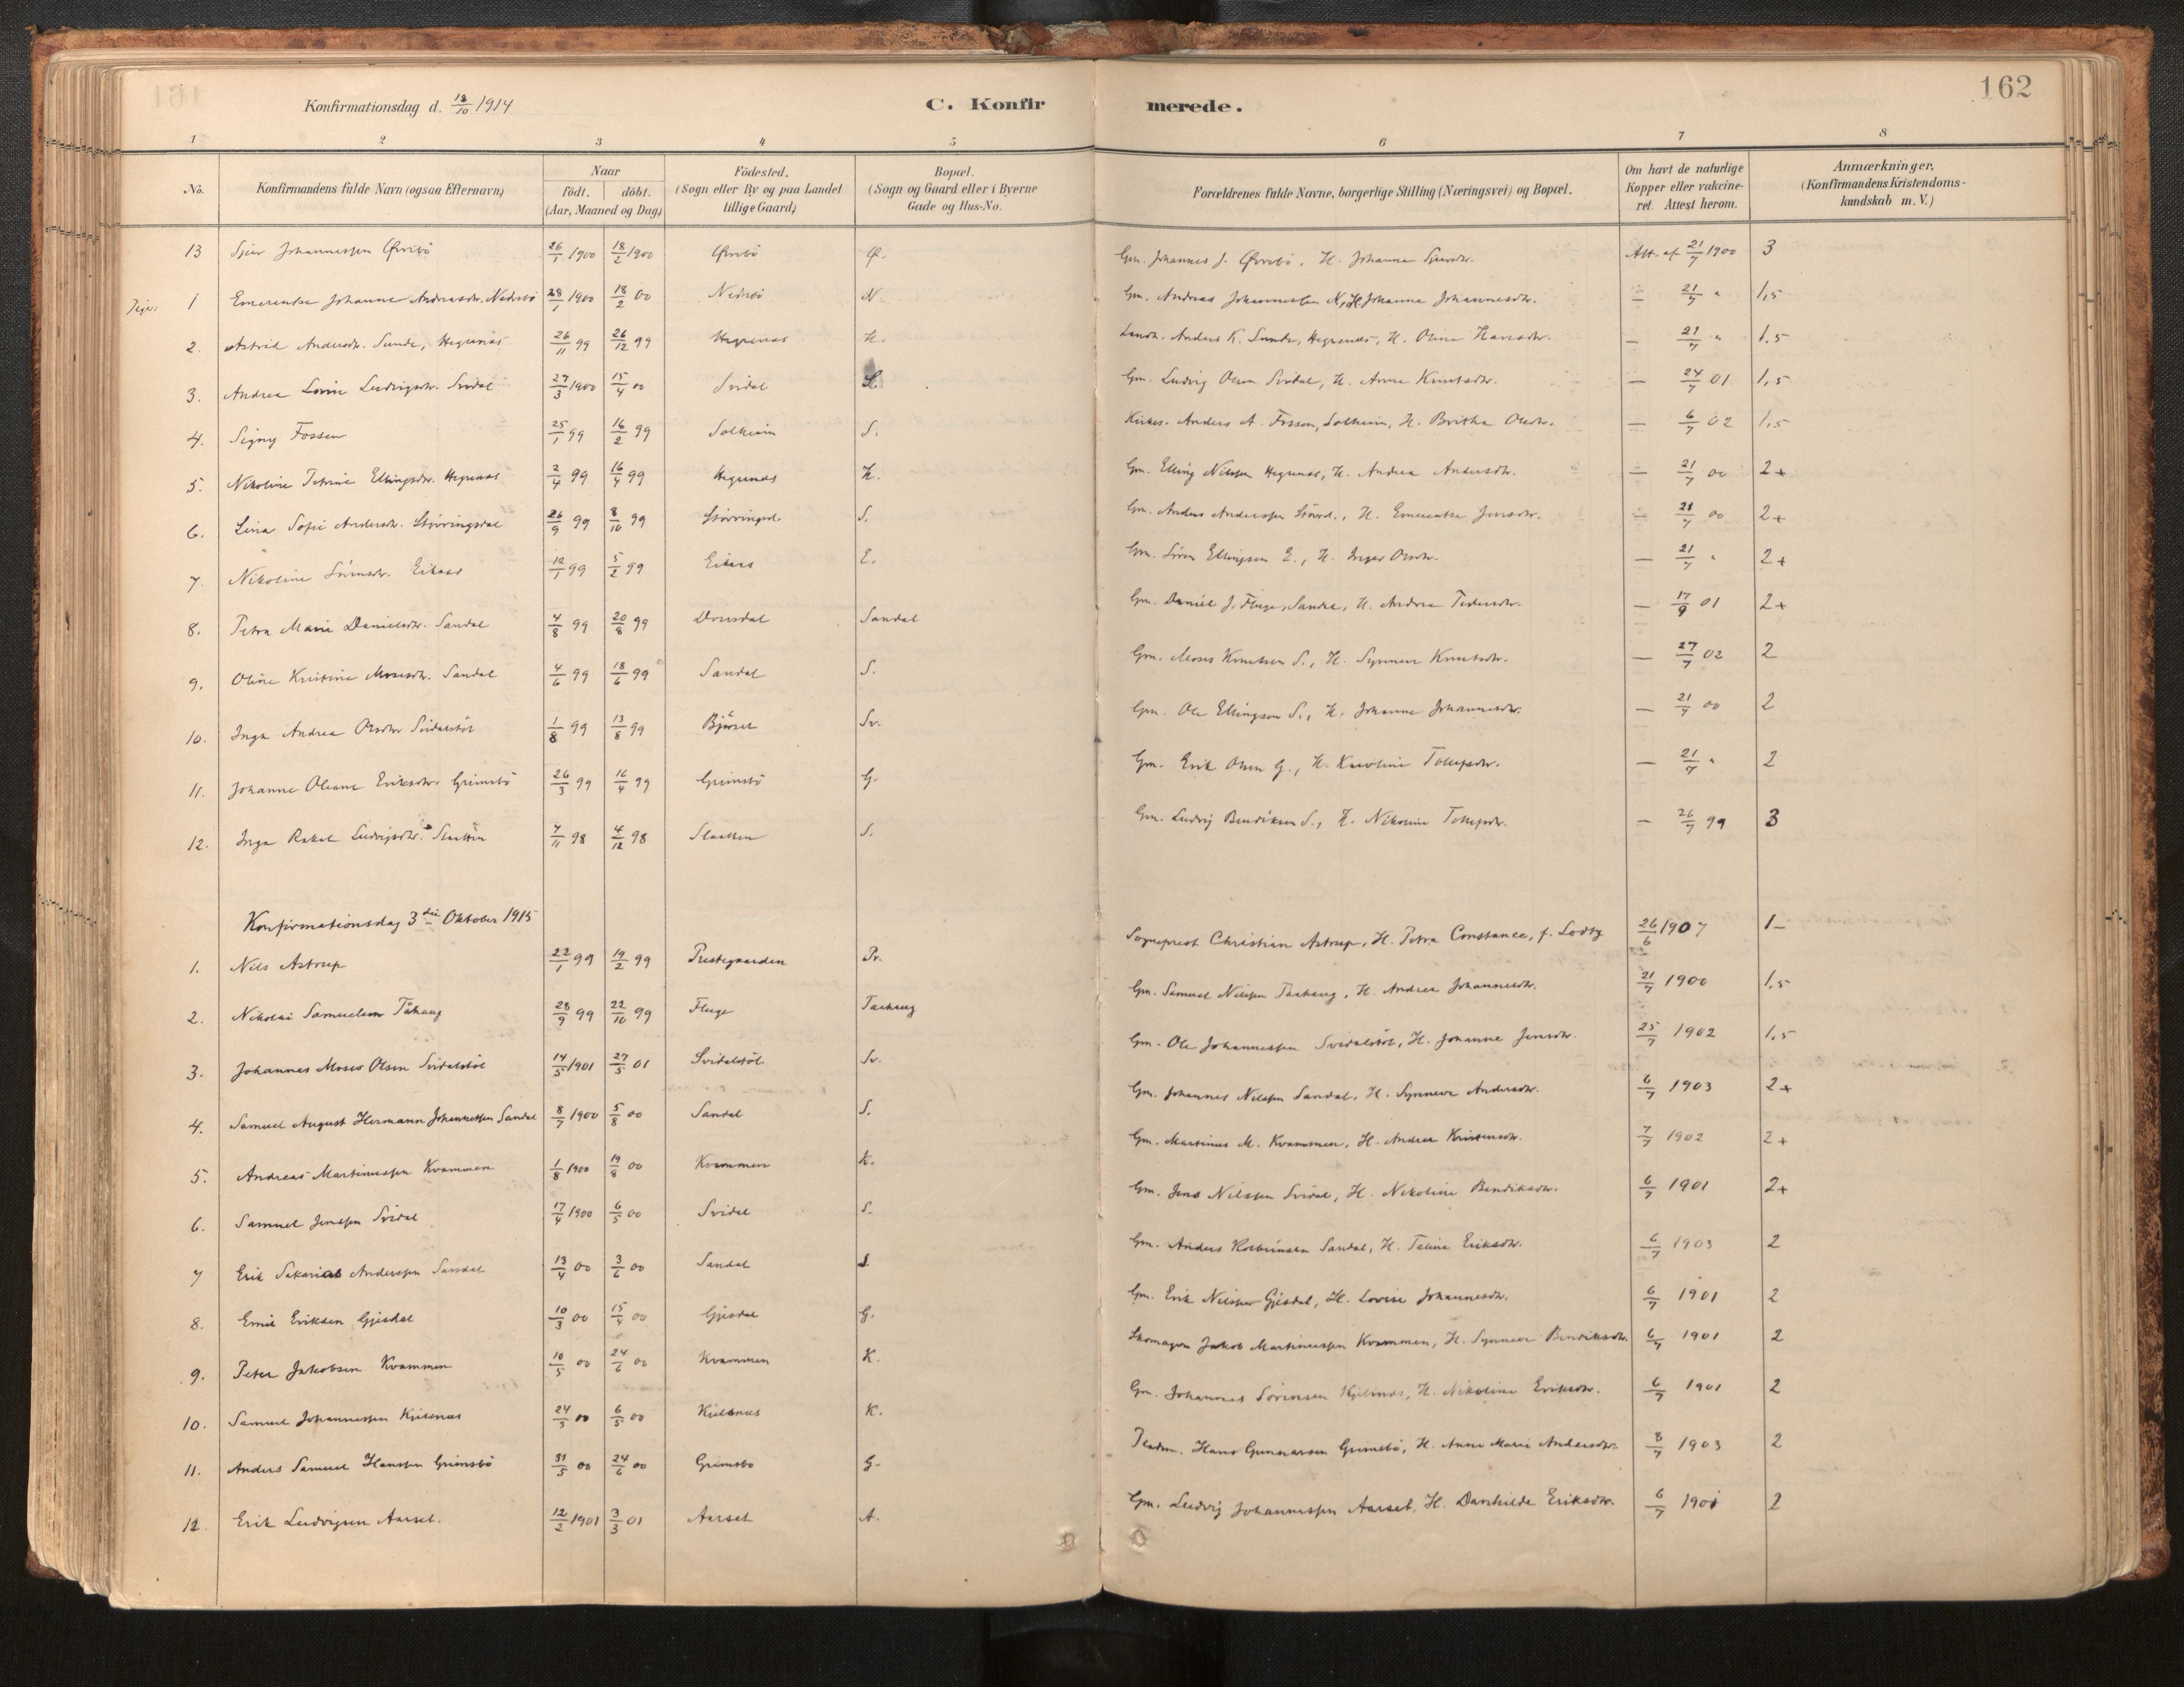 162
Konfirmationsdag d. 18/10 1914 C. Konfirmerede.
1 2 3 4 5 6 7 8
No. Konfirmandens fulde Navn (ogsaa Efternavn) Naar födt. döbt. (Aar, Maaned og Dag) Födested. (Sogn eller By og paa Landet tillige Gaard) Bopæl. (Sogn og Gaard eller i Byerne Gade og Hus-No. Forældrenes fulde Navne, borgerlige Stilling (Næringsvei) og Bopæl. Om havt de naturlige Kopper eller vakcineret. Attest herom. Anmærkninger. (Konfirmandens Kristendomskundskab m. V.)
13 Sjur Johannessen Øvrebö 26/1 1900 18/2 1900 Øvrebö Ø. Gm. Johannes J. Øvrebö, H. Johanna Sjursdtr. Att. af 21/7 1900 3
Piger: 1 Emerentse Johanne Andreasdtr. Nedrebö 28/1 1900 18/2 00 Nedrebö N. Gm. Andreas Johannessen N., H. Johanne Johannesdtr. — 21/7 " 1,5
2. Astrid Andersdtr. Sunde, Hegrenæs 26/11 99 26/12 99 Hegrenæs H. Anders K. Sunde, Hegrenæs, H. Oline Hansdtr. — 21/7 " 1,5
3. Andrea Lovise Ludvigsdtr. Svidal 27/3 1900 15/4 00 Svidal S. Gm. Ludvig Olsen Svidal, H. Anna Knutsdtr. — 24/7 01 1,5
4. Signy Fossen 25/1 99 16/2 99 Solheim S. Kirkes. Anders A. Fossen, Solheim, H. Brithe Olsdtr. — 6/7 02 1,5
5. Nikoline Petrine Ellingsdtr. Hegrenæs 2/4 99 16/4 99 Hegrenæs H. Gm. Elling Nilssen Hegrenæs, H. Andrea Andersdtr. — 21/7 00 2+
6. Lina Sofie Andersdtr. Støvringsdal 26/9 99 8/10 99 Støvringsd. S. Gm. Anders Anderssen Støvrd., H. Emerentse Jensdtr. — 21/7 00 2+
7. Nikoline Sörensdtr. Eikaas 12/1 99 5/2 99 Eikaas E. Gm. Sören Ellingsen E., H. Inger Olsdtr. — 21/7 " 2+
8. Petra Marie Danielsdtr. Sandal 4/8 99 20/8 99 Dvergsdal Sandal Gm. Daniel J. Fluge, Sandal, H. Andrea Pedersdtr. — 17/9 01 2+
9. Oline Kristine Mosesdtr. Sandal 4/6 99 18/6 99 Sandal S. Gm. Moses Knutsen S., H. Synneve Knutsdtr. — 27/7 02 2
10. Inga Andrea Olsdtr. Svidalstöl 1/8 99 13/8 99 Bjørset Sv. Gm. Ole Ellingsen S., H. Johanne Johannesdtr. — 21/7 00 2
11. Johanne Oleane Eriksdtr. Grimsbö 26/3 99 16/4 99 Grimsbö G. Gm. Erik Olsen G., H. Karoline Tollefsdtr. — 21/7 " 2
12. Inga Rakel Ludvigsdtr. Slaatten 7/11 98 4/12 98 Slaatten S. Gm. Ludvig Bendiksen S., H. Nikoline Tollefsdtr. — 26/7 99 3
Konfirmationsdag 3die Oktober 1915
1. Nils Astrup 22/1 99 19/2 99 Prestegaarden Pr. Sogneprest Christian Astrup, H. Petra Constance, f. Lodtz 26/6 1907 1-
2. Nikolai Samuelsen Tåhaug 28/9 99 22/10 99 Fluge Taahaug Gm. Samuel Nilssen Taahaug, H. Andrea Johannesdtr. 21/7 1900 1,5
3. Johannes Moses Olsen Svidalstöl 14/5 1901 27/5 01 Svidalstöl Sv. Gm. Ole Johannessen Svidalstöl, H. Johanne Jensdtr. 25/7 1902 1,5
4. Samuel August Hermann Johannessen Sandal 8/7 1900 5/8 00 Sandal S. Gm. Johannes Nilssen Sandal, H. Synneve Andersdtr. 6/7 1903 2+
5. Andreas Martinussen Kvammen 1/8 1900 19/8 00 Kvammen K. Gm. Martinus M. Kvammen, H. Andrea Kristensdtr. 7/7 1902 2+
6. Samuel Jenssen Svidal 17/4 1900 6/5 00 Svidal S. Gm. Jens Nilssen Svidal, H. Nikoline Bendiksdtr. 6/7 1901 2+
7 Erik Sakarias Anderssen Sandal 13/4 00 3/6 00 Sandal S. Gm. Anders Kolbeinsen Sandal, H. Taline Eriksdtr. 6/7 1903 2
8. Emil Eriksen Gjesdal 10/3 00 15/4 00 Gjesdal G. Gm. Erik Nilssen Gjesdal, H. Lovise Johannesdtr. 6/7 1901 2
9. Peter Jakobsen Kvammen 10/5 00 24/6 00 Kvammen K. Skomager Jakob Martinussen Kvammen, H. Synneve Bendiksdtr. 6/7 1901 2
10. Samuel Johannessen Kjelsnæs 24/3 00 6/5 00 Kjelsnæs K. Gm. Johannes Sörensen Kjelsnæs, H. Nikoline Eriksdtr. 6/7 1901 2
11. Anders Samuel Hanssen Grimsbö 31/5 00 24/6 00 Grimsbö G. Pladsm. Hans Gunnarsen Grimsbö, H. Anne Marie Andersdtr. 8/7 1903 2
12. Erik Ludvigsen Aarset. 12/2 1901 3/3 01 Aarset A. Gm. Ludvig Johannessen Aarset, H. Davhilde Eriksdtr. 6/7 1901 2